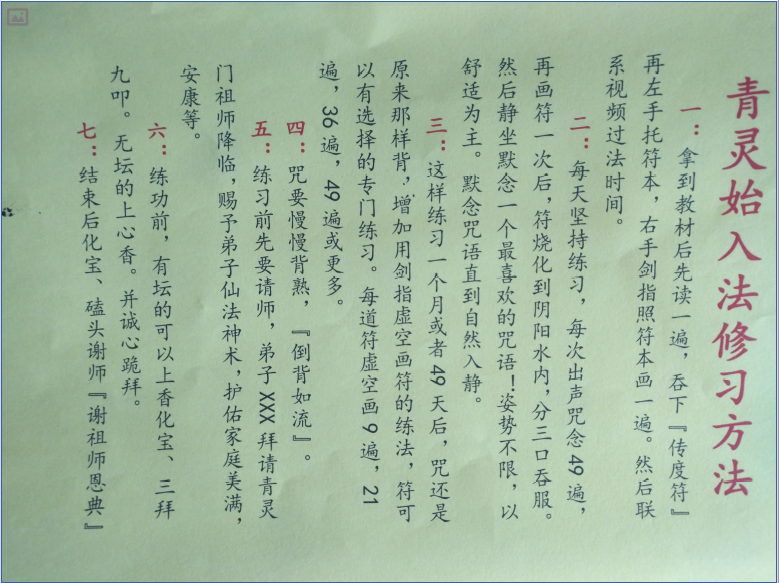 青灵始入法修习方法
一：拿到教材后先读一遍，吞下『传度符』
再左手托符本，右手剑指照符本画一遍。然后联
系视频过法时间。
二：每天坚持练习，每次出声咒念49遍，
再画符一次后，符烧化到阴阳水内，分三口吞服。
然后静坐默念一个最喜欢的咒语！姿势不限，以
舒适为主。默念咒语直到自然入静。
三：这样练习一个月或者49天后，咒还是
原来那样背，增加用剑指虚空画符的练法，符可
以有选择的专门练习。每道符虚空画9遍，21
遍，36遍，49遍或更多。
四：咒要慢慢背熟，『倒背如流』。
五：练习前先要请师，弟子XXX拜请青灵
门祖师降临，赐予弟子仙法神术，护佑家庭美满，
安康等。
六：练功前，有坛的可以上香化宝、三拜
九叩。无坛的上心香。并诚心跪拜。
七：结束后化宝、磕头谢师『谢祖师恩典』